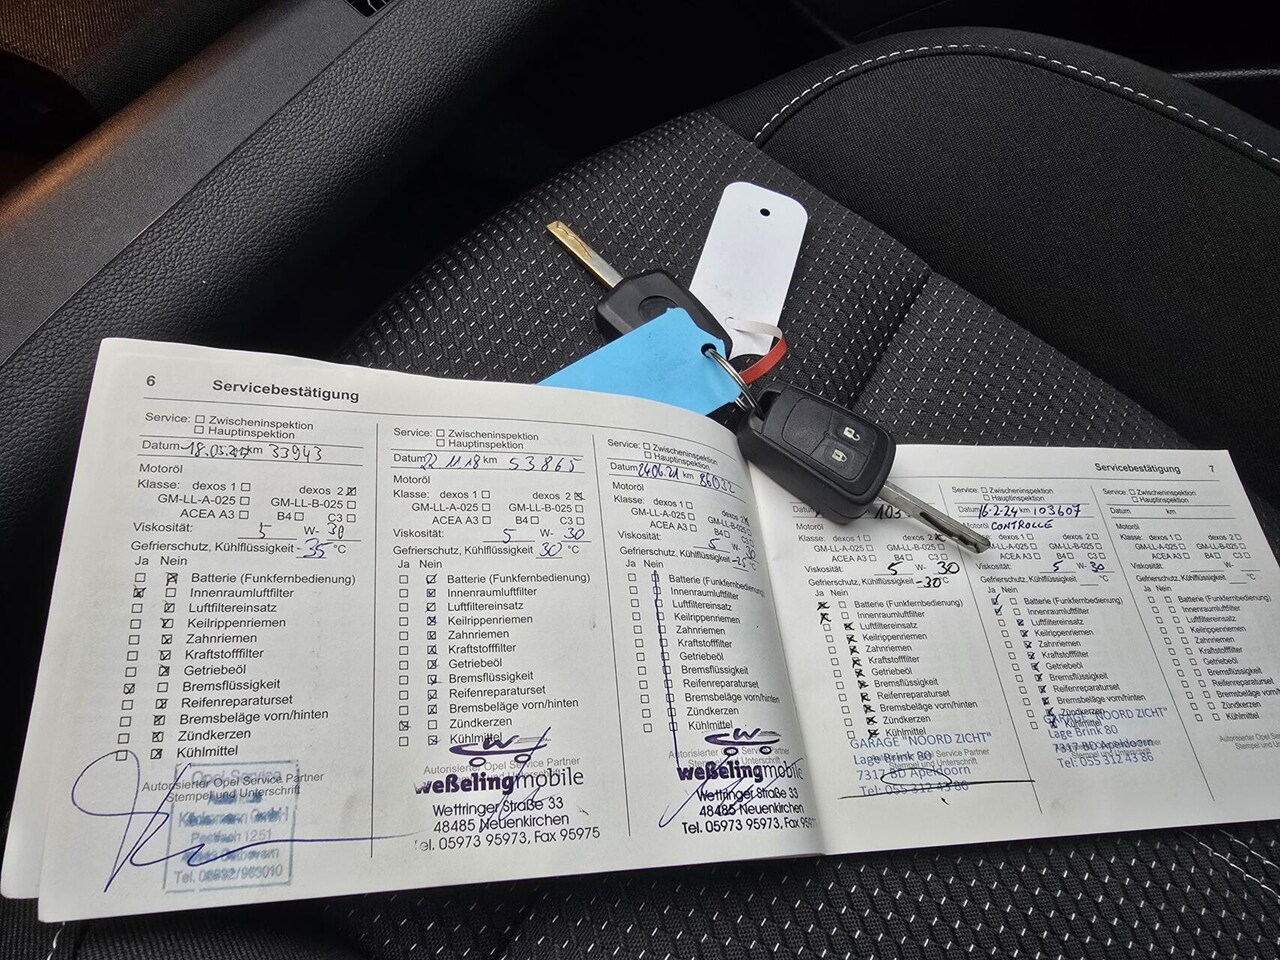 6 Servicebestätigung
Service: Zwischeninspektion
Hauptinspektion
Datum 18.03. km 33943
Motoröl
Klasse: dexos 1 dexos 2
GM-LL-A-025 GM-LL-B-025
ACEA A3 B4 C3
Viskosität: 5 W- 30
Gefrierschutz, Kühlflüssigkeit -35 °C
Ja Nein
Batterie (Funkfernbedienung)
Innenraumluftfilter
Luftfiltereinsatz
Keilrippenriemen
Zahnriemen
Kraftstofffilter
Getriebeöl
Bremsflüssigkeit
Reifenreparaturset
Bremsbeläge vorn/hinten
Zündkerzen
Kühlmittel
Autorisierter Opel Service Partner
Stempel und Unterschrift
Opel Service
GmbH
Postfach 1251
Service: Zwischeninspektion
Hauptinspektion
Datum 22 11 18 km 53865
Motoröl
Klasse: dexos 1 dexos 2
GM-LL-A-025 GM-LL-B-025
ACEA A3 B4 C3
Viskosität: 5 W- 30
Gefrierschutz, Kühlflüssigkeit 30 °C
Ja Nein
Batterie (Funkfernbedienung)
Innenraumluftfilter
Luftfiltereinsatz
Keilrippenriemen
Zahnriemen
Kraftstofffilter
Getriebeöl
Bremsflüssigkeit
Reifenreparaturset
Bremsbeläge vorn/hinten
Zündkerzen
Kühlmittel
Autorisierter Opel Service Partner
cw
weßelingmobile
Wettringer Straße 33
48485 Neuenkirchen
Tel. 05973 95973, Fax 95975
Service: Zwischeninspektion
Hauptinspektion
Datum 24.06.21 km 86032
Motoröl
Klasse: dexos 1 dexos 2
GM-LL-A-025 GM-LL-B-025
ACEA A3 B4 C3
Viskosität: 5 W- 30
Gefrierschutz, Kühlflüssigkeit -25 °C
Ja Nein
Batterie (Funkfernbedienung)
Innenraumluftfilter
Luftfiltereinsatz
Keilrippenriemen
Zahnriemen
Kraftstofffilter
Getriebeöl
Bremsflüssigkeit
Reifenreparaturset
Bremsbeläge vorn/hinten
Zündkerzen
Kühlmittel
Autorisierter Opel Service Partner
cw
weßelingmobile
Wettringer Straße 33
48485 Neuenkirchen
Tel. 05973 95973, Fax 
Servicebestätigung 7
103
Klasse: dexos 1 dexos 2
GM-LL-A-025 GM-LL-B-025
ACEA A3 B4 C3
Viskosität: 5 W- 30
Gefrierschutz, Kühlflüssigkeit -30 °C
Ja Nein
Batterie (Funkfernbedienung)
Innenraumluftfilter
Luftfiltereinsatz
Keilrippenriemen
Zahnriemen
Kraftstofffilter
Getriebeöl
Bremsflüssigkeit
Reifenreparaturset
Bremsbeläge vorn/hinten
Zündkerzen
Kühlmittel
GARAGE "NOORD ZICHT"
Lage Brink 80
7317 BD Apeldoorn
Tel: 055 312 43 86
Service: Zwischeninspektion
Hauptinspektion
Datum 16-2-24 km 103607
Motoröl CONTROLLE
dexos 1 dexos 2
GM-LL-B-025
ACEA A3 B4 C3
Viskosität: 5 W- 30
Gefrierschutz, Kühlflüssigkeit °C
Ja Nein
Batterie (Funkfernbedienung)
Innenraumluftfilter
Luftfiltereinsatz
Keilrippenriemen
Zahnriemen
Kraftstofffilter
Getriebeöl
Bremsflüssigkeit
Reifenreparaturset
Bremsbeläge vorn/hinten
Zündkerzen
Kühlmittel
GARAGE "NOORD ZICHT"
Lage Brink 80
7317 BD Apeldoorn
Tel: 055 312 43 86
Service: Zwischeninspektion
Hauptinspektion
Datum km
Motoröl
Klasse: dexos 1 dexos 2
GM-LL-A-025 GM-LL-B-025
ACEA A3 B4 C3
Viskosität: W-
Gefrierschutz, Kühlflüssigkeit °C
Ja Nein
Batterie (Funkfernbedienung)
Innenraumluftfilter
Luftfiltereinsatz
Keilrippenriemen
Zahnriemen
Kraftstofffilter
Getriebeöl
Bremsflüssigkeit
Reifenreparaturset
Bremsbeläge
Zündkerzen
Kühlmittel